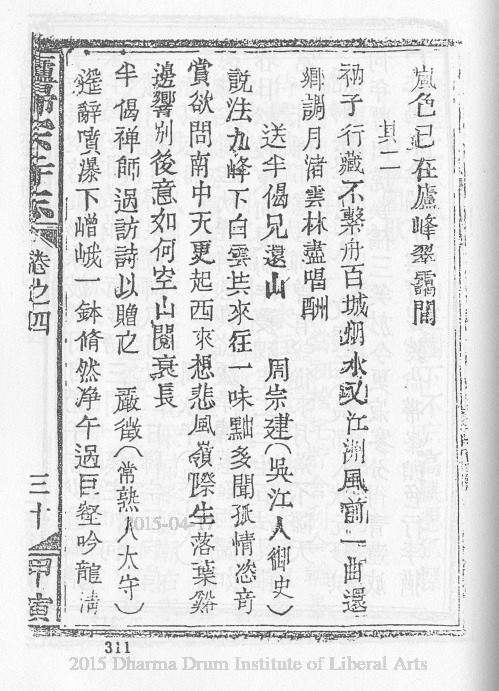 嵐色已在廬峰翠靄間
其二
衲子行藏不繫舟百城烟水又江洲風前一曲還
卿調月渚雲林盡唱酬
送半偈兄還山　周崇建（吳江人御史）
說法九峰下白雲共來往一味點多聞孤情恣奇
賞欲問南中天更起西來想悲風嶺際生落葉谿
邊響別後意如何空山閱衰長
半偈禪師過訪詩以贈之　嚴徵（常熟人太守）
遲辭噴瀑下嶒峨一鉢脩然净午過巨壑吟龍清
卷之四
三十
甲寅
2015-04-
311
2015 Dharma Drum Institute of Liberal Arts